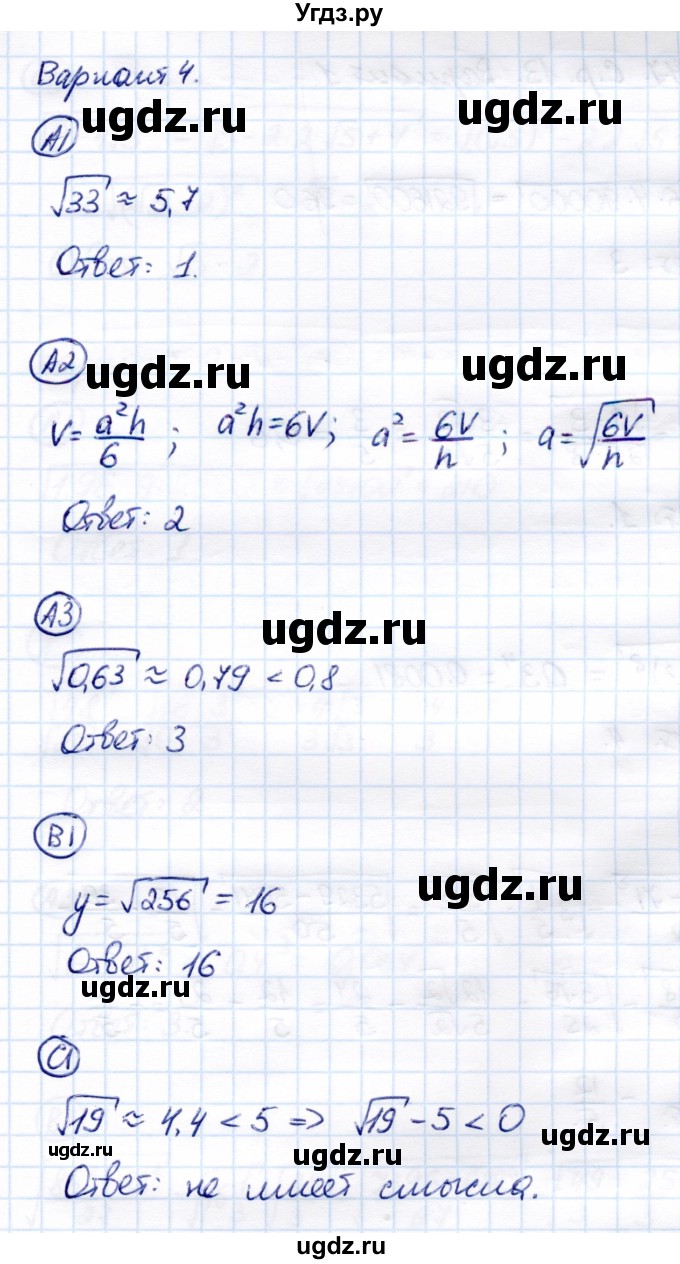 Угдз.ру
Вариант 4.
ugdz.ru ugdz.ru
A1
√33 ≈ 5,7
Ответ: 1.
A2
ugdz.ru ugdz.ru
V = a²h/6 ; a²h = 6V; a² = 6V/h ; a = √(6V/h)
Ответ: 2
A3
ugdz.ru
√0,63 ≈ 0,79 < 0,8
Ответ: 3
B1
ugdz.ru
y = √256 = 16
Ответ: 16
ugdz.ru
C1
√19 ≈ 4,4 < 5 => √19 - 5 < 0
ugdz.ru ugdz.ru ugdz.ru
Ответ: не имеет смысла.
ugdz.ru